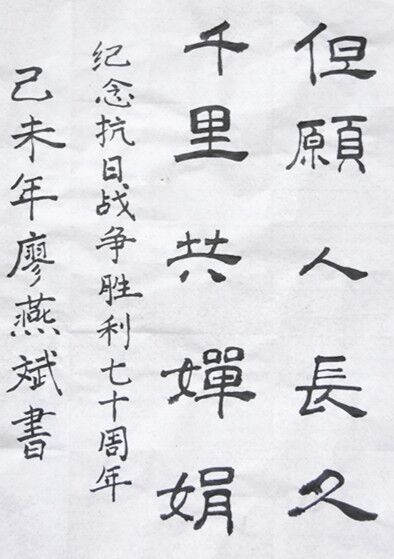 但願人長久
千里共嬋娟
纪念抗日战争胜利七十周年
己未年廖燕斌書